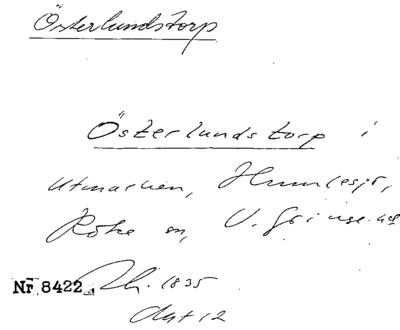 Österlundstorp
Österlundstorp i
utmarken, Humlesjö,
Röke sn, V. Göinge hd
Nr 8422 Lh. 1835
Akt 12